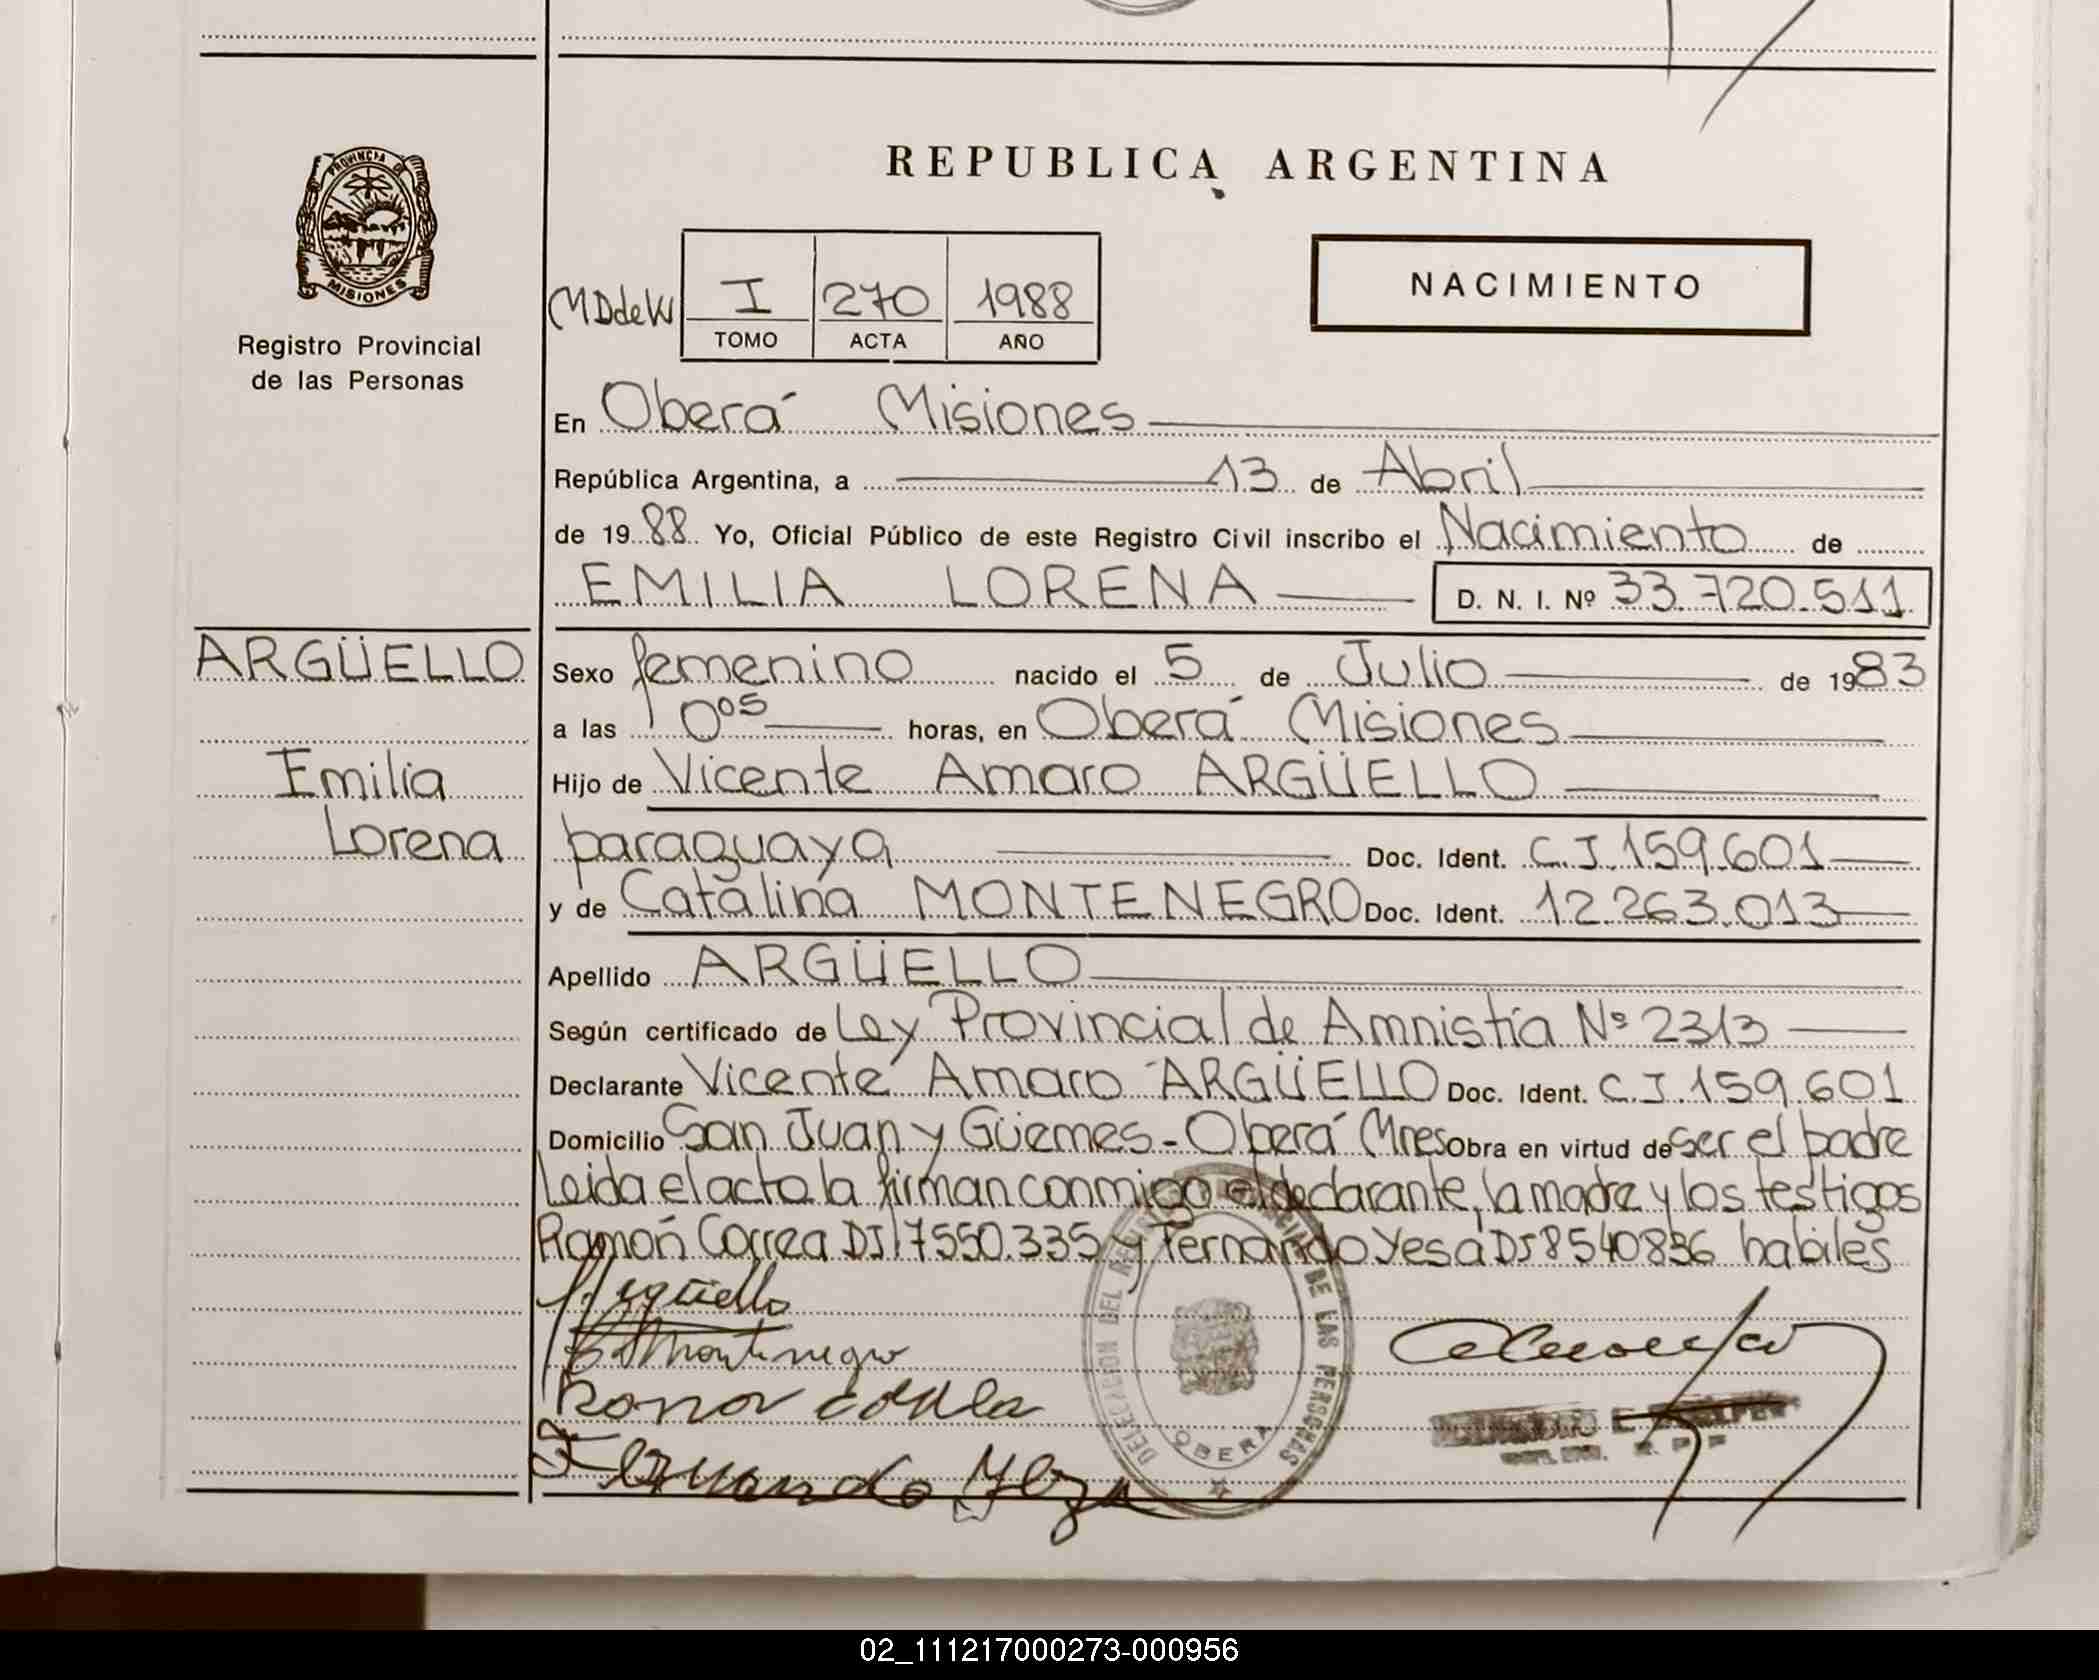 PROVINCIA DE
MISIONES
Registro Provincial
de las Personas
REPUBLICA ARGENTINA
NACIMIENTO
MDdeW I 270 1988
TOMO ACTA AÑO
En Oberá Misiones
República Argentina, a 13 de Abril
de 1988 Yo, Oficial Público de este Registro Civil inscribo el Nacimiento de
EMILIA LORENA D. N. I. Nº 33.720.511
ARGÜELLO
Emilia
Lorena
Sexo femenino nacido el 5 de Julio de 1983
a las 0⁰⁵ horas, en Oberá Misiones
Hijo de Vicente Amaro ARGÜELLO
paraguaya Doc. Ident. C.I.159.601
y de Catalina MONTENEGRO Doc. Ident. 12.263.013
Apellido ARGÜELLO
Según certificado de Ley Provincial de Amnistía Nº 2313
Declarante Vicente Amaro ARGÜELLO Doc. Ident. C.I.159.601
Domicilio San Juan y Güemes - Oberá Mnes Obra en virtud de ser el padre
Leida el acto la firman conmigo el declarante, la madre y los testigos
Ramón Correa DI 7550.335 y Fernando Yesa DI 8540836 habiles
Argüello
Montenegro
DELEGACION DEL REGISTRO PROVINCIAL DE LAS PERSONAS
OBERA
02_111217000273-000956